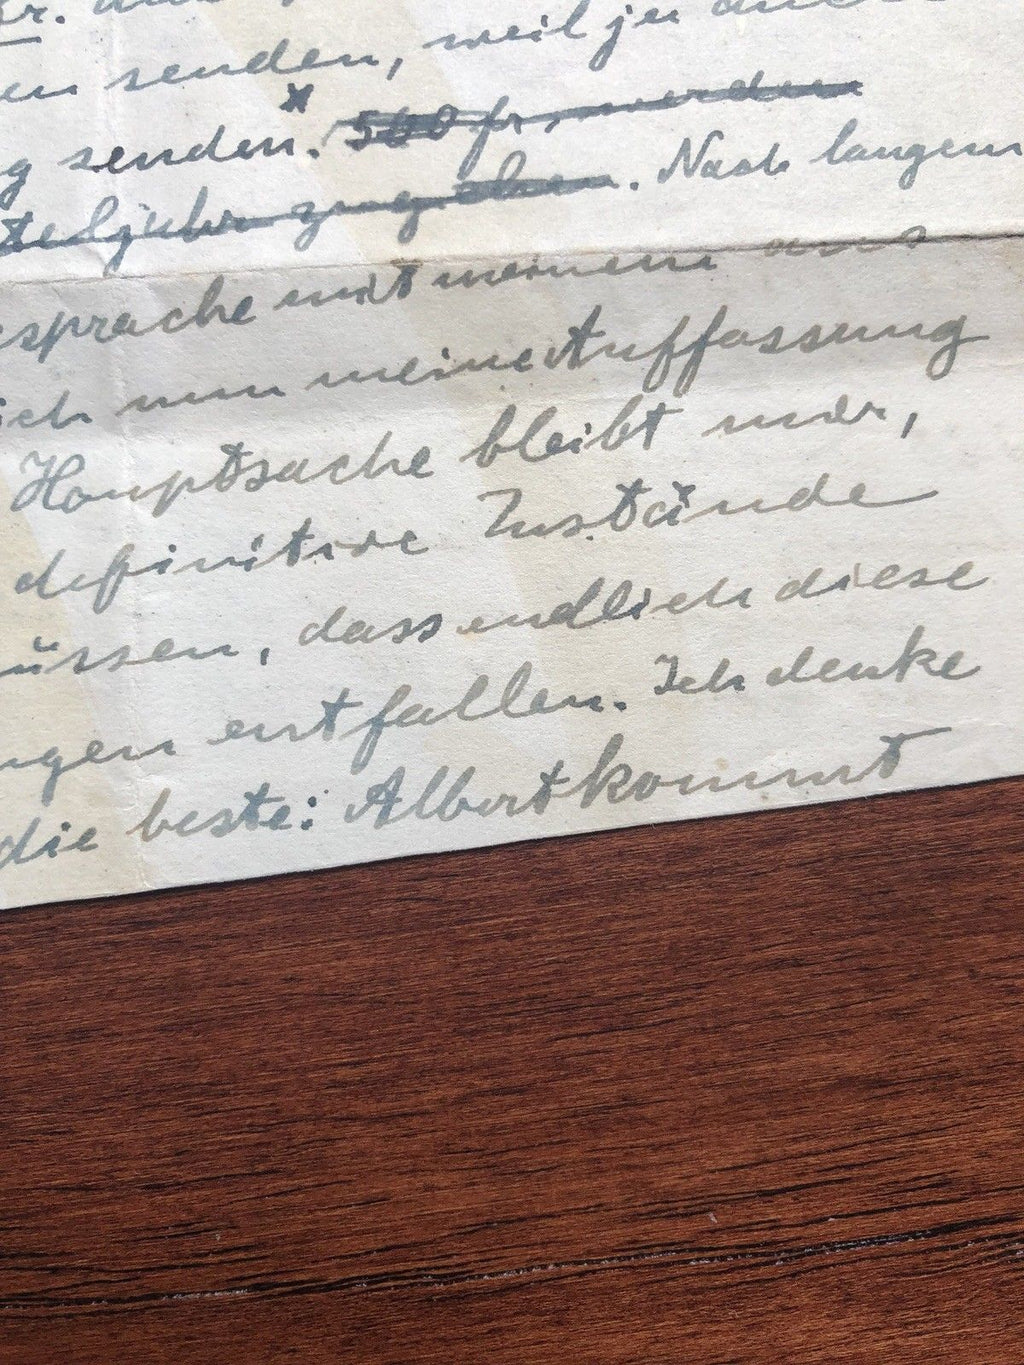 en senden, weil ja auch
g senden. 500 fr. werden
teljahr zugehen. Nach langem
espräche mit meinem
ich nun meine Auffassung
Hauptsache bleibt mir,
definitive Zustände
üssen, dass endlich diese
ngen entfallen. Ich denke
die beste: Albert kommt